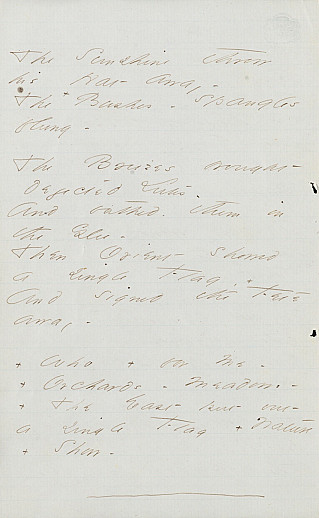 The Sunshine threw
his Hat away -
The + Bushes - spangles
flung -
The Breezes brought
dejected Lutes -
And bathed them in
the Glee -
Then Orient showed
a single Flag,
And signed the Fete
away -
+ Who + for me -
+ Orchards - meadows -
+ The East put out
a single Flag + Nature
+ Show -